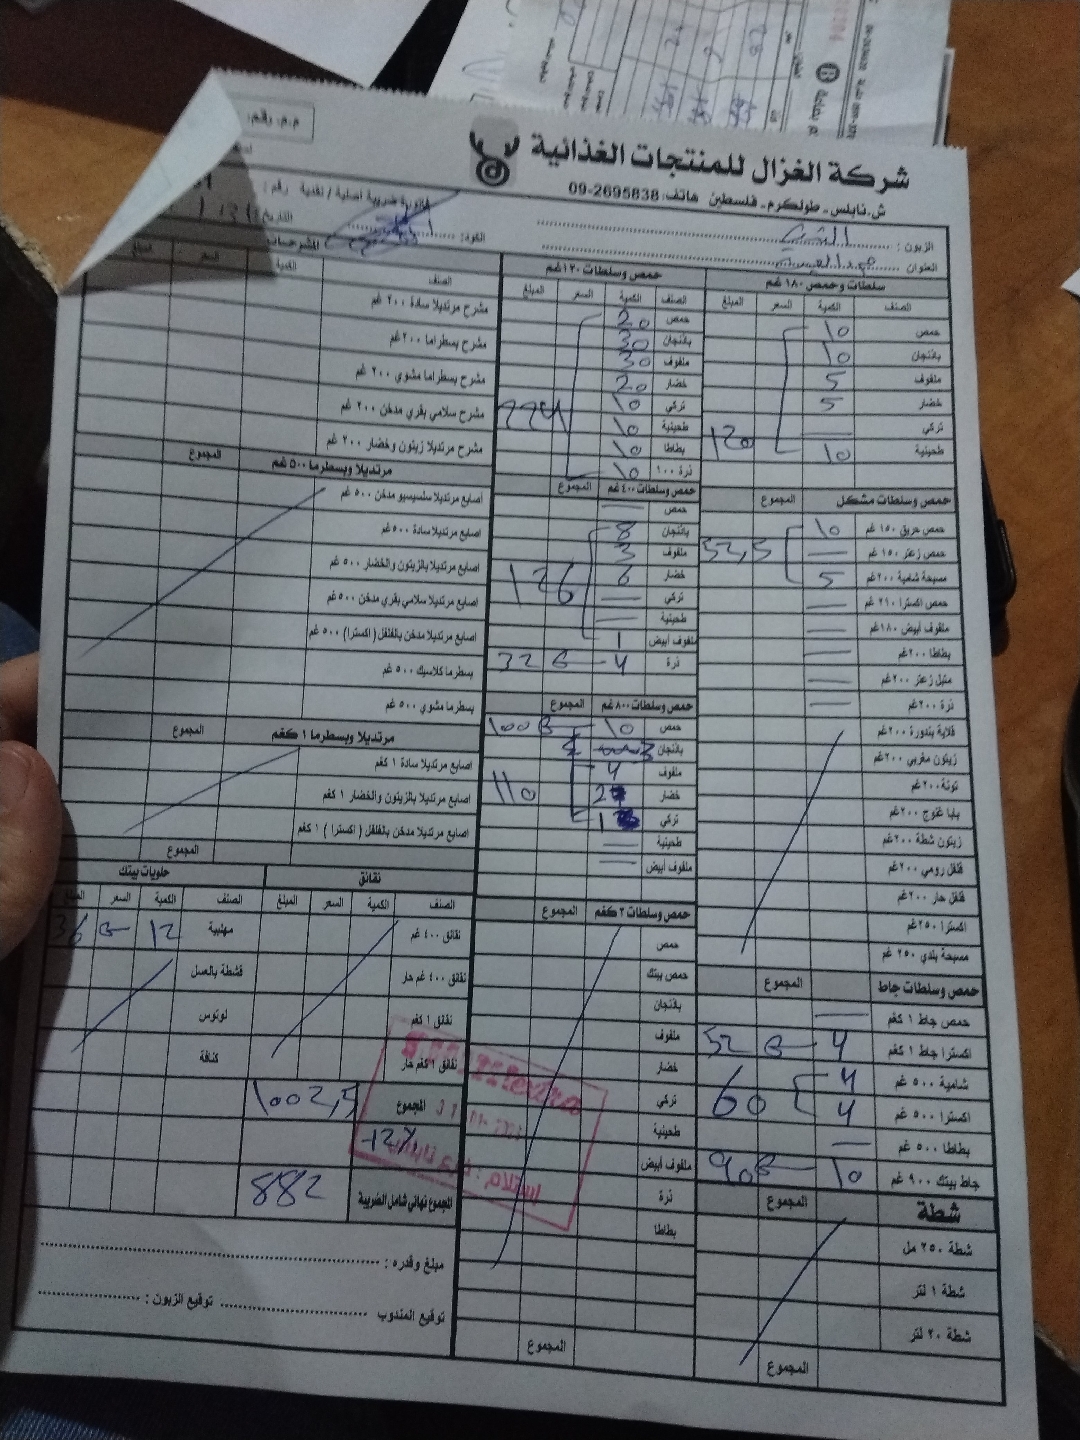 شركة الغزال للمنتجات الغذائية
ش.نابلس - طولكرم - فلسطين هاتف: 09-2695838
م.م. رقم:
فاتورة ضريبية اصلية / نقدية رقم:
التاريخ:
الزبون:
العنوان
الكوة:
سلطات وحمص ١٨٠ غم
الصنف الكمية السعر المبلغ
حمص 10
باذنجان 10
ملفوف 5
خضار 5
تركي —
طحينية 10
120
حمص وسلطات مشكل المجموع
حمص حريق ١٥٠ غم 10
حمص زعتر ١٥٠ غم — 52,5
مسبحة شامية ٢٠٠ غم 5
حمص اكسترا ٢١٠ غم —
ملفوف أبيض ١٨٠ غم —
بطاطا ٢٠٠ غم —
متبل زعتر ٢٠٠ غم —
ذرة ٢٠٠ غم —
قلاية بندورة ٢٠٠ غم
زيتون مغربي ٢٠٠ غم
تونة ٢٠٠ غم
بابا غنوج ٢٠٠ غم
زيتون شطة ٢٠٠ غم
فلفل رومي ٢٠٠ غم
فلفل حار ٢٠٠ غم
اكسترا ٢٥٠ غم
مسبحة بلدي ٢٥٠ غم
حمص وسلطات جاط المجموع
حمص جاط ١ كغم —
اكسترا جاط ١ كغم 4 52
شامية ٥٠٠ غم 4
اكسترا ٥٠٠ غم 4 60
بطاطا ٥٠٠ غم —
جاط بيتك ٩٠٠ غم 10 90
شطة المجموع
شطة ٢٥٠ مل
شطة ١ لتر
شطة ٢٠ لتر
المجموع
حمص وسلطات ١٢٠ غم
الصنف الكمية السعر المبلغ
حمص 20
باذنجان 30
ملفوف 30
خضار 20
تركي 10
طحينية 10
بطاطا 10
ذرة ١٠٠ 10
224
حمص وسلطات ٤٠٠ غم المجموع
حمص —
باذنجان 8
ملفوف 3
خضار 6 126
تركي —
طحينية —
ملفوف أبيض 1
ذرة 4 32
حمص وسلطات ٨٠٠ غم المجموع
حمص 10 100
باذنجان
ملفوف 4
خضار 2 110
تركي 1
طحينية —
ملفوف أبيض —
حمص وسلطات ٢ كغم المجموع
حمص
حمص بيتك
باذنجان
ملفوف
خضار
تركي
طحينية
ملفوف أبيض
ذرة
بطاطا
المجموع
الكمية السعر المبلغ
الصنف
مشرح مرتديلا سادة ٢٠٠ غم
مشرح بسطراما ٢٠٠ غم
مشرح بسطراما مشوي ٢٠٠ غم
مشرح سلامي بقري مدخن ٢٠٠ غم
مشرح مرتديلا زيتون وخضار ٢٠٠ غم
مرتديلا وبسطرما ٥٠٠ غم المجموع
اصابع مرتديلا سلسيسيو مدخن ٥٠٠ غم
اصابع مرتديلا سادة ٥٠٠ غم
اصابع مرتديلا بالزيتون والخضار ٥٠٠ غم
اصابع مرتديلا سلامي بقري مدخن ٥٠٠ غم
اصابع مرتديلا مدخن بالفلفل ( اكسترا ) ٥٠٠ غم
بسطرما كلاسيك ٥٠٠ غم
بسطرما مشوي ٥٠٠ غم
مرتديلا وبسطرما ١ كغم المجموع
اصابع مرتديلا سادة ١ كغم
اصابع مرتديلا بالزيتون والخضار ١ كغم
اصابع مرتديلا مدخن بالفلفل ( اكسترا ) ١ كغم
المجموع
نقانق
الصنف الكمية السعر المبلغ
نقانق ٤٠٠ غم
نقانق ٤٠٠ غم حار
نقانق ١ كغم
نقانق ١ كغم حار
حلويات بيتك
الصنف الكمية السعر المبلغ
مهلبية 12 36
قشطة بالعسل
لوتوس
كنافة
المجموع 1002,5
-12%
المجموع نهائي شامل الضريبة 882
مبلغ وقدره :
توقيع المندوب توقيع الزبون :